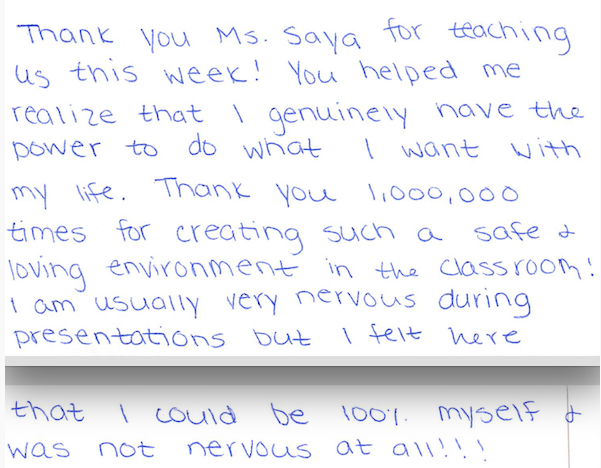 Thank you Ms. Saya for teaching
us this week! You helped me
realize that I genuinely have the
power to do what I want with
my life. Thank you 1,000,000
times for creating such a safe &
loving environment in the classroom!
I am usually very nervous during
presentations but I felt here
that I could be 100%. myself &
was not nervous at all!!!